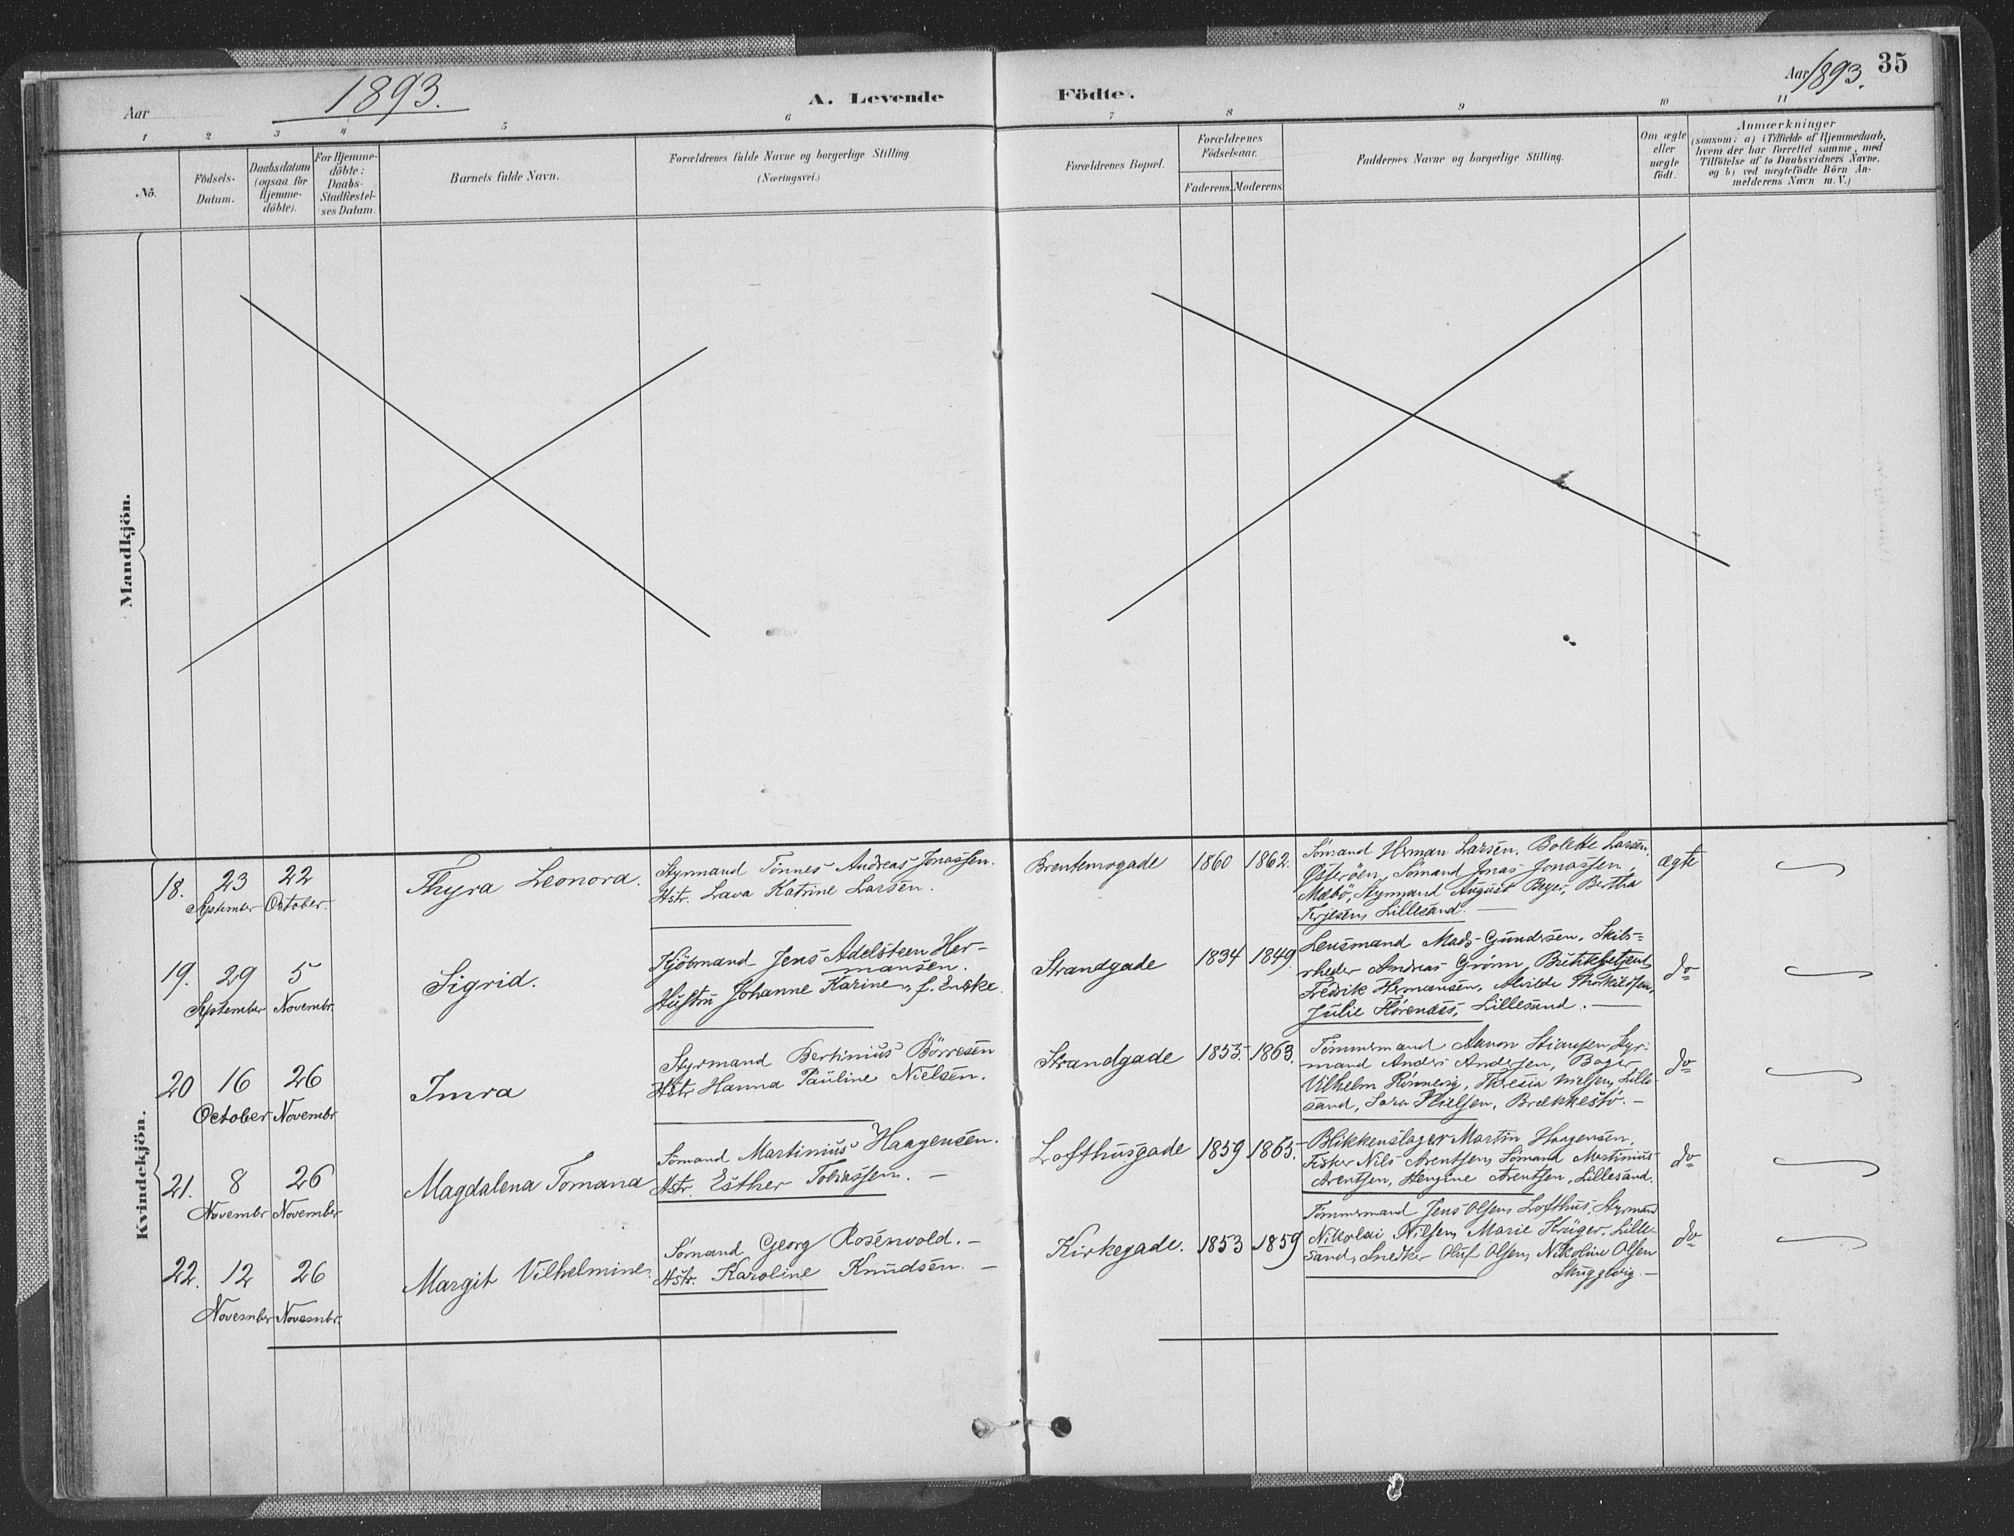 Aar 1893. A. Levende Födte. Aar 1893. 35
1 2 3 4 5 6 7 8 9 10 11
No.
Födsels-
Datum.
Daabsdatum
(ogsaa for
Hjemme-
döbte).
For Hjemme-
döbte:
Daabs-
Stadfæstel-
ses Datum.
Barnets fulde Navn.
Forældrenes fulde Navne og borgerlige Stilling
(Næringsvei.)
Forældrenes Bopæl.
Forældrenes
Födselsaar.
Faderens. Moderens.
Faddernes Navne og borgerlige Stilling.
Om ægte
eller
uægte
födt.
Anmærkninger
(saasom: a) i Tilfælde af Hjemmedaab,
hvem der har forrettet samme, med
Tilföielse af to Daabsvidners Navne.
og b) ved uægtefödte Börn An-
melderens Navn m. V.)
Mandkjön.
Kvindekjön.
18. 23 September 22 October. Thyra Leonora.
Styrmand Tönnes Andreas Jonassen.
Hstr. Lava Katrine Larsen.
Brentemogade 1860 1862.
Sömand Herman Larsen, Bolette Larsen,
Österöen, Sömand Jonas Jonassen,
Mæbö, Styrmand August Beyer, Bertha
Terjesen, Lillesand.
ægte
19. 29 September 5 Novembr. Sigrid.
Kjöbmand Jens Adelsteen Her-
mansen.
Hustru Johanne Karine, f. Enske.
Strandgade 1834 1849
Lensmand Mads Gundersen, Skibs-
rheder Andreas Grönn, Butikbetjent
Fredrik Hermansen, Alvilde Thorkildsen,
Julie Sörensen, Lillesand.
do
20 16 October 26 Novembr. Imra
Styrmand Bertinius Börresen
Hstr Hanna Pauline Nielsen.
Strandgade 1853 1863.
Tömmermand Aanon Stiansen, Styr-
mand Anders Andersen, Bager
Vilhelm Rinnesig, Theresia Nielsen, Lille-
sand, Sara Nielsen, Brækkestö.
do
21. 8 Novembr 26 November Magdalena Tomana
Sömand Martinius Haagensen.
Hstr. Esther Tobiassen.
Lofthusgade 1859 1865.
Blikkenslager Martin Haagensen,
Fisker Nils Arentsen, Sömand Martinius
Arentsen, Hengine Arentsen, Lillesand.
do
22. 12 November 26 Novembr. Margit Vilhelmine.
Sömand Georg Rosenvold.
Hstr. Karoline Knudsen.
Kirkegade. 1853 1859
Tömmermand Jens Olsen Lofthus, Styrmand
Nikolai Nilsen, Marie Krüger, Lille-
sand, Snedker Oluf Olsen, Nikoline Olsen
Skuggevig.
do